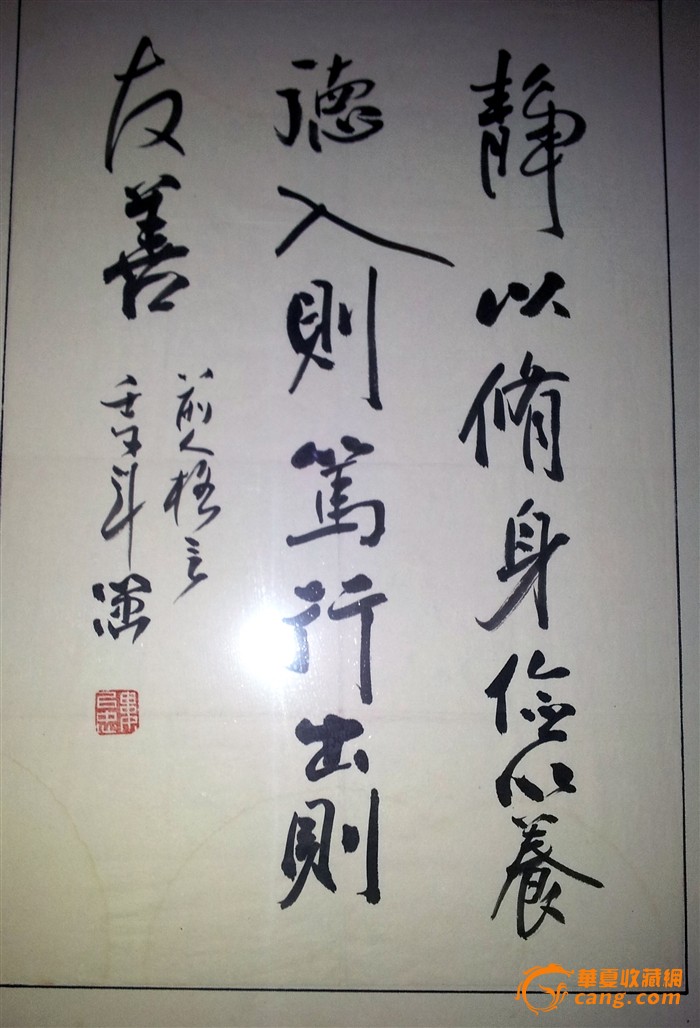 靜以脩身儉以養
德入則篤行出則
友善
前人格言
華夏收藏網
cang.com